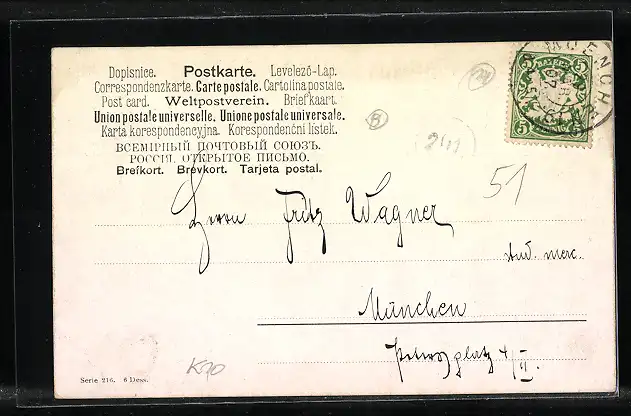 Dopisnice. Postkarte. Levelező-Lap.
Correspondenzkarte. Carte postale. Cartolina postale.
Post card. Weltpostverein. Briefkaart.
Union postale universelle. Unione postale universale.
Karta korespondencyjna. Korespondenční lístek.
ВСЕМІРНЫЙ ПОЧТОВЫЙ СОЮЗЪ.
РОССІЯ. ОТКРЫТОЕ ПИСЬМО.
Brefkort. Brevkort. Tarjeta postal.
BAYERN
5 5
5
MUENCHEN
B
2411
51
Herrn Fritz Wagner
stud. merc.
München
Petersplatz 4/II.
K20
Serie 216. 6 Dess.